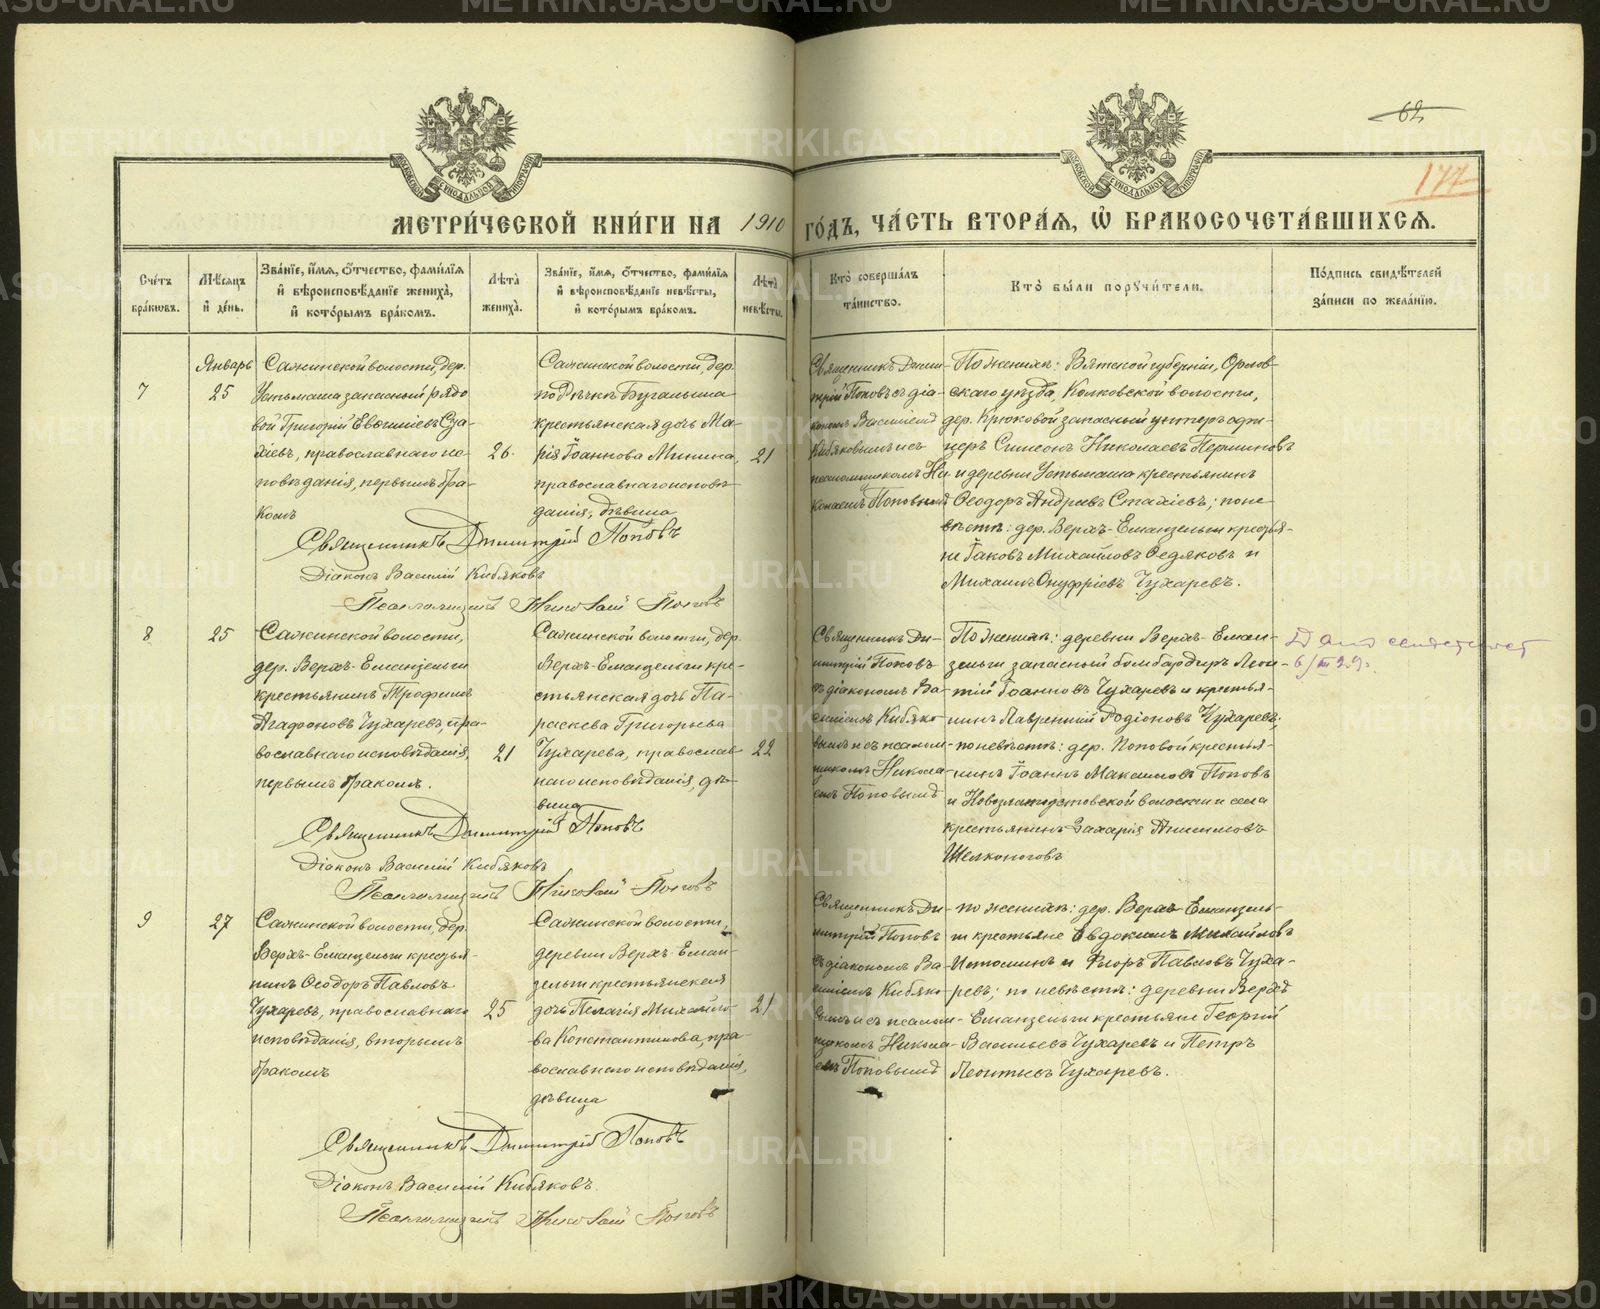 62
177
МЕТРИ́ЧЕСКОЙ КНИ́ГИ НА 1910 ГО́ДЪ, ЧА́СТЬ ВТОРА́Я, Ѡ БРАКОСОЧЕТА́ВШИХСЯ.
Сче́тъ бра́ковъ.
Мѣ́сяцъ и де́нь.
Зва́нїе, и́мя, о́тчество, фами́лїя и вѣроисповѣ́данїе жениха̀, и кото́рымъ бра́комъ.
Лѣ́та жениха̀.
Зва́нїе, и́мя, о́тчество, фами́лїя и вѣроисповѣ́данїе невѣ́сты, и кото́рымъ бра́комъ.
Лѣ́та невѣ́сты.
Кто̀ соверша́лъ та́инство.
Кто̀ бы́ли поручи́тели.
По́дпись свидѣ́телей за́писи по жела́нїю.
7
Январь
25
Сажинской волости, дер.
Устьмаша запасный рядо-
вой Григорій Евѳиміевъ Ста-
хіевъ, православнаго ис-
повѣданія, первымъ бра-
комъ
26.
Сажинской волости, дер.
по рѣчкѣ Бугалыша
крестьянская дочь Ма-
рія Іоаннова Минина,
православнаго исповѣ-
данія, дѣвица
21
Священникъ Дими-
трій Поповъ съ діа-
кономъ Василіемъ
Кибяковымъ и съ
псаломщикомъ Ни-
колаемъ Поповымъ
По женихѣ: Вятской губерніи, Орлов-
скаго уѣзда, Колковской волости,
дер. Крюковой запасный унтеръ офи-
церъ Симеонъ Николаевъ Перминовъ
и деревни Устьмаша крестьянинъ
Ѳеодоръ Андреевъ Стахіевъ; по не-
вѣстѣ: дер. Верхъ-Еманзельги крестья-
не Іаковъ Михайловъ Ѳедяковъ и
Михаилъ Онуфріевъ Чухаревъ.
Священникъ Димитрій Поповъ
Діаконъ Василій Кибяковъ
Псаломщикъ Николай Поповъ
8
25
Сажинской волости,
дер. Верхъ-Еманзельги
крестьянинъ Трофимъ
Агафоновъ Чухаревъ, пра-
вославнаго исповѣданія,
первымъ бракомъ.
21
Сажинской волости, дер.
Верхъ-Еманзельги кре-
стьянская дочь Па-
раскева Григорьева
Чухарева, православ-
наго исповѣданія, дѣ-
вица
22
Священникъ Ди-
митрій Поповъ
съ діакономъ Ва-
силіемъ Кибяко-
вымъ и съ псалом-
щикомъ Никола-
емъ Поповымъ
По женихѣ: деревни Верхъ-Еман-
зельги запасный бомбардиръ Леон-
тій Іоанновъ Чухаревъ и крестья-
нинъ Лаврентій Родіоновъ Чухаревъ;
по невѣстѣ: дер. Поповой крестья-
нинъ Іоаннъ Максимовъ Поповъ
и Новозлатоустовской волости и села
крестьянинъ Захарія Анисимовъ
Шелконоговъ
6/III 29.
Священникъ Димитрій Поповъ
Діаконъ Василій Кибяковъ
Псаломщикъ Николай Поповъ
9
27
Сажинской волости, дер.
Верхъ-Еманзельги крестья-
нинъ Ѳеодоръ Павловъ
Чухаревъ, православнаго
исповѣданія, вторымъ
бракомъ
25
Сажинской волости,
деревни Верхъ-Еман-
зельги крестьянская
дочь Пелагія Михайло-
ва Константинова, пра-
вославнаго исповѣданія,
дѣвица
21
Священникъ Ди-
митрій Поповъ
съ діакономъ Ва-
силіемъ Кибяко-
вымъ и съ псалом-
щикомъ Никола-
емъ Поповымъ
по женихѣ: дер. Верхъ-Еманзель-
ги крестьяне Евдокимъ Михайловъ
Истоминъ и Флоръ Павловъ Чуха-
ревъ; по невѣстѣ: деревни Верхъ
Еманзельги крестьяне Георгій
Васильевъ Чухаревъ и Петръ
Леонтьевъ Чухаревъ.
Священникъ Димитрій Поповъ
Діаконъ Василій Кибяковъ.
Псаломщикъ Николай Поповъ